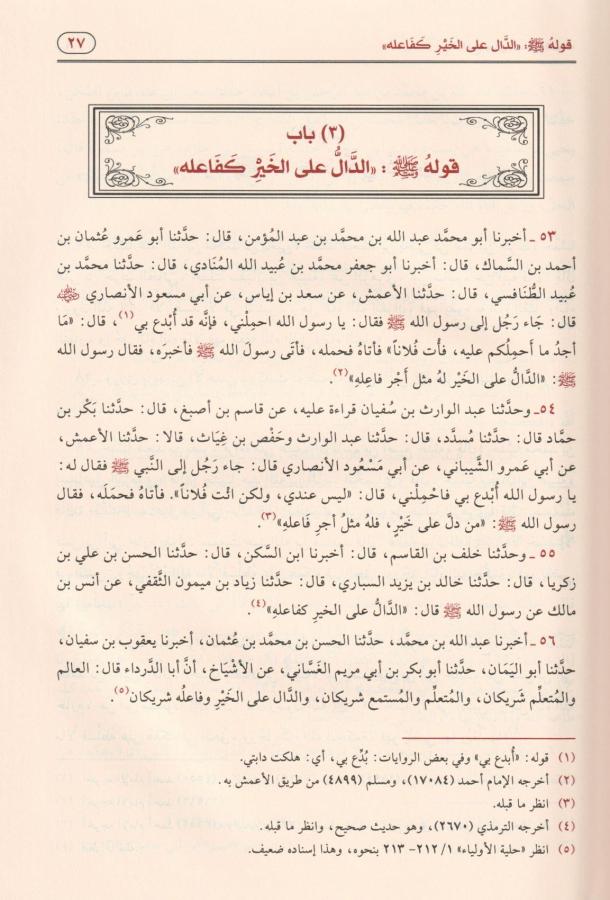 قولهُ ﷺ: «الدَّال على الخَيْرِ كَفَاعله»
٢٧
(٣) باب
قولهُ ﷺ : «الدَّالُّ على الخَيْرِ كَفَاعله»
٥٣ ـ أخبرنا أبو محمد عبد الله بن محمَّد بن عبد المُؤمن، قال: حدَّثنا أبو عَمرو عُثمان بن
أحمد بن السَّماك، قال: أخبرنا أبو جعفر محمَّد بن عُبيد الله المُنَادي، قال: حدَّثنا محمَّد بن
عُبيد الطَّنَافسي، قال: حدَّثنا الأعمش، عن سعد بن إياس، عن أبي مسعود الأنصاري ﷺ
قال: جَاء رَجُل إلى رسول الله ﷺ فقال: يا رسول الله احمِلْني، فإنَّه قد أُبْدع بي(١)، قال: «مَا
أجدُ ما أَحمِلُكم عليه، فأْت فُلاناً» فأتاهُ فحمله، فأتَى رسولَ الله ﷺ فأخبرَه، فقال رسول الله
ﷺ: «الدَّالُ على الخَيْر لهُ مثل أَجْر فاعِلهِ»(٢).
٥٤ ـ وحدَّثنا عبد الوارث بن سُفيان قراءة عليه، عن قاسم بن أصبغ، قال: حدَّثنا بَكْر بن
حمَّاد قال: حدَّثنا مُسدَّد، قال: حدَّثنا عبد الوارث وحَفْص بن غِيَاث، قالا: حدَّثنا الأعمش،
عن أبي عَمرو الشَّيباني، عن أبي مَسْعُود الأنصاري قال: جاء رَجُل إلى النَّبي ﷺ فقال له:
يا رسول الله أُبْدع بي فاحْمِلْني، قال: «ليس عندي، ولكن ائت فُلاناً». فأتاهُ فحمَلَه، فقال
رسول الله ﷺ: «من دلَّ على خَيْرٍ، فلهُ مثلُ أجرِ فَاعلهِ»(٣).
٥٥ ـ وحدَّثنا خلف بن القاسم، قال: أخبرنا ابن السَّكن، قال: حدَّثنا الحسن بن علي بن
زكريا، قال: حدَّثنا خالد بن يزيد السباري، قال: حدَّثنا زياد بن ميمون الثَّقفي، عن أنس بن
مالك عن رسول الله ﷺ قال: «الدَّالُ على الخيرِ كفاعله»(٤).
٥٦ ـ أخبرنا عبد الله بن محمَّد، حدَّثنا الحسن بن محمَّد بن عُثمان، أخبرنا يعقوب بن سفيان،
حدَّثنا أبو اليَمَان، حدَّثنا أبو بكر بن أبي مريم الغَسَّاني، عن الأشْيَاخ، أنَّ أبا الدَّرداء قال: العالم
والمُتعلِّم شَريكان، والمُتعلِّم والمُستمع شريكان، والدَّال على الخَيْرِ وفاعلُه شريكان(٥).
(١) قوله: «أُبدع بي» وفي بعض الروايات: بُدِّع بي، أي: هلكت دابتي.
(٢) أخرجه الإمام أحمد (١٧٠٨٤)، ومسلم (٤٨٩٩) من طريق الأعمش به.
(٣) انظر ما قبله.
(٤) أخرجه الترمذي (٢٦٧٠)، وهو حديث صحيح، وانظر ما قبله.
(٥) انظر «حلية الأولياء» ١/ ٢١٢- ٢١٣ بنحوه، وهذا إسناده ضعيف.